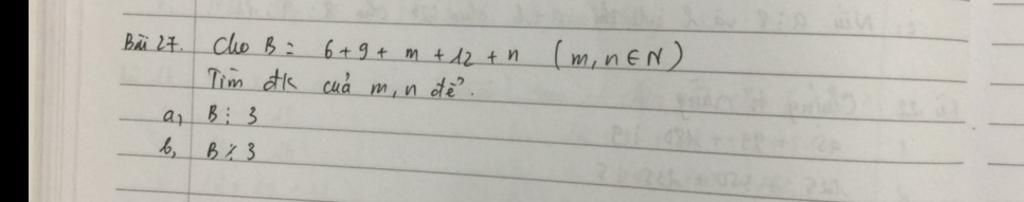 Bài 27. Cho B = 6 + 9 + m + 12 + n (m, n ∈ N)
Tìm đk của m, n để.
a, B ⋮ 3
b, B ⋮̸ 3